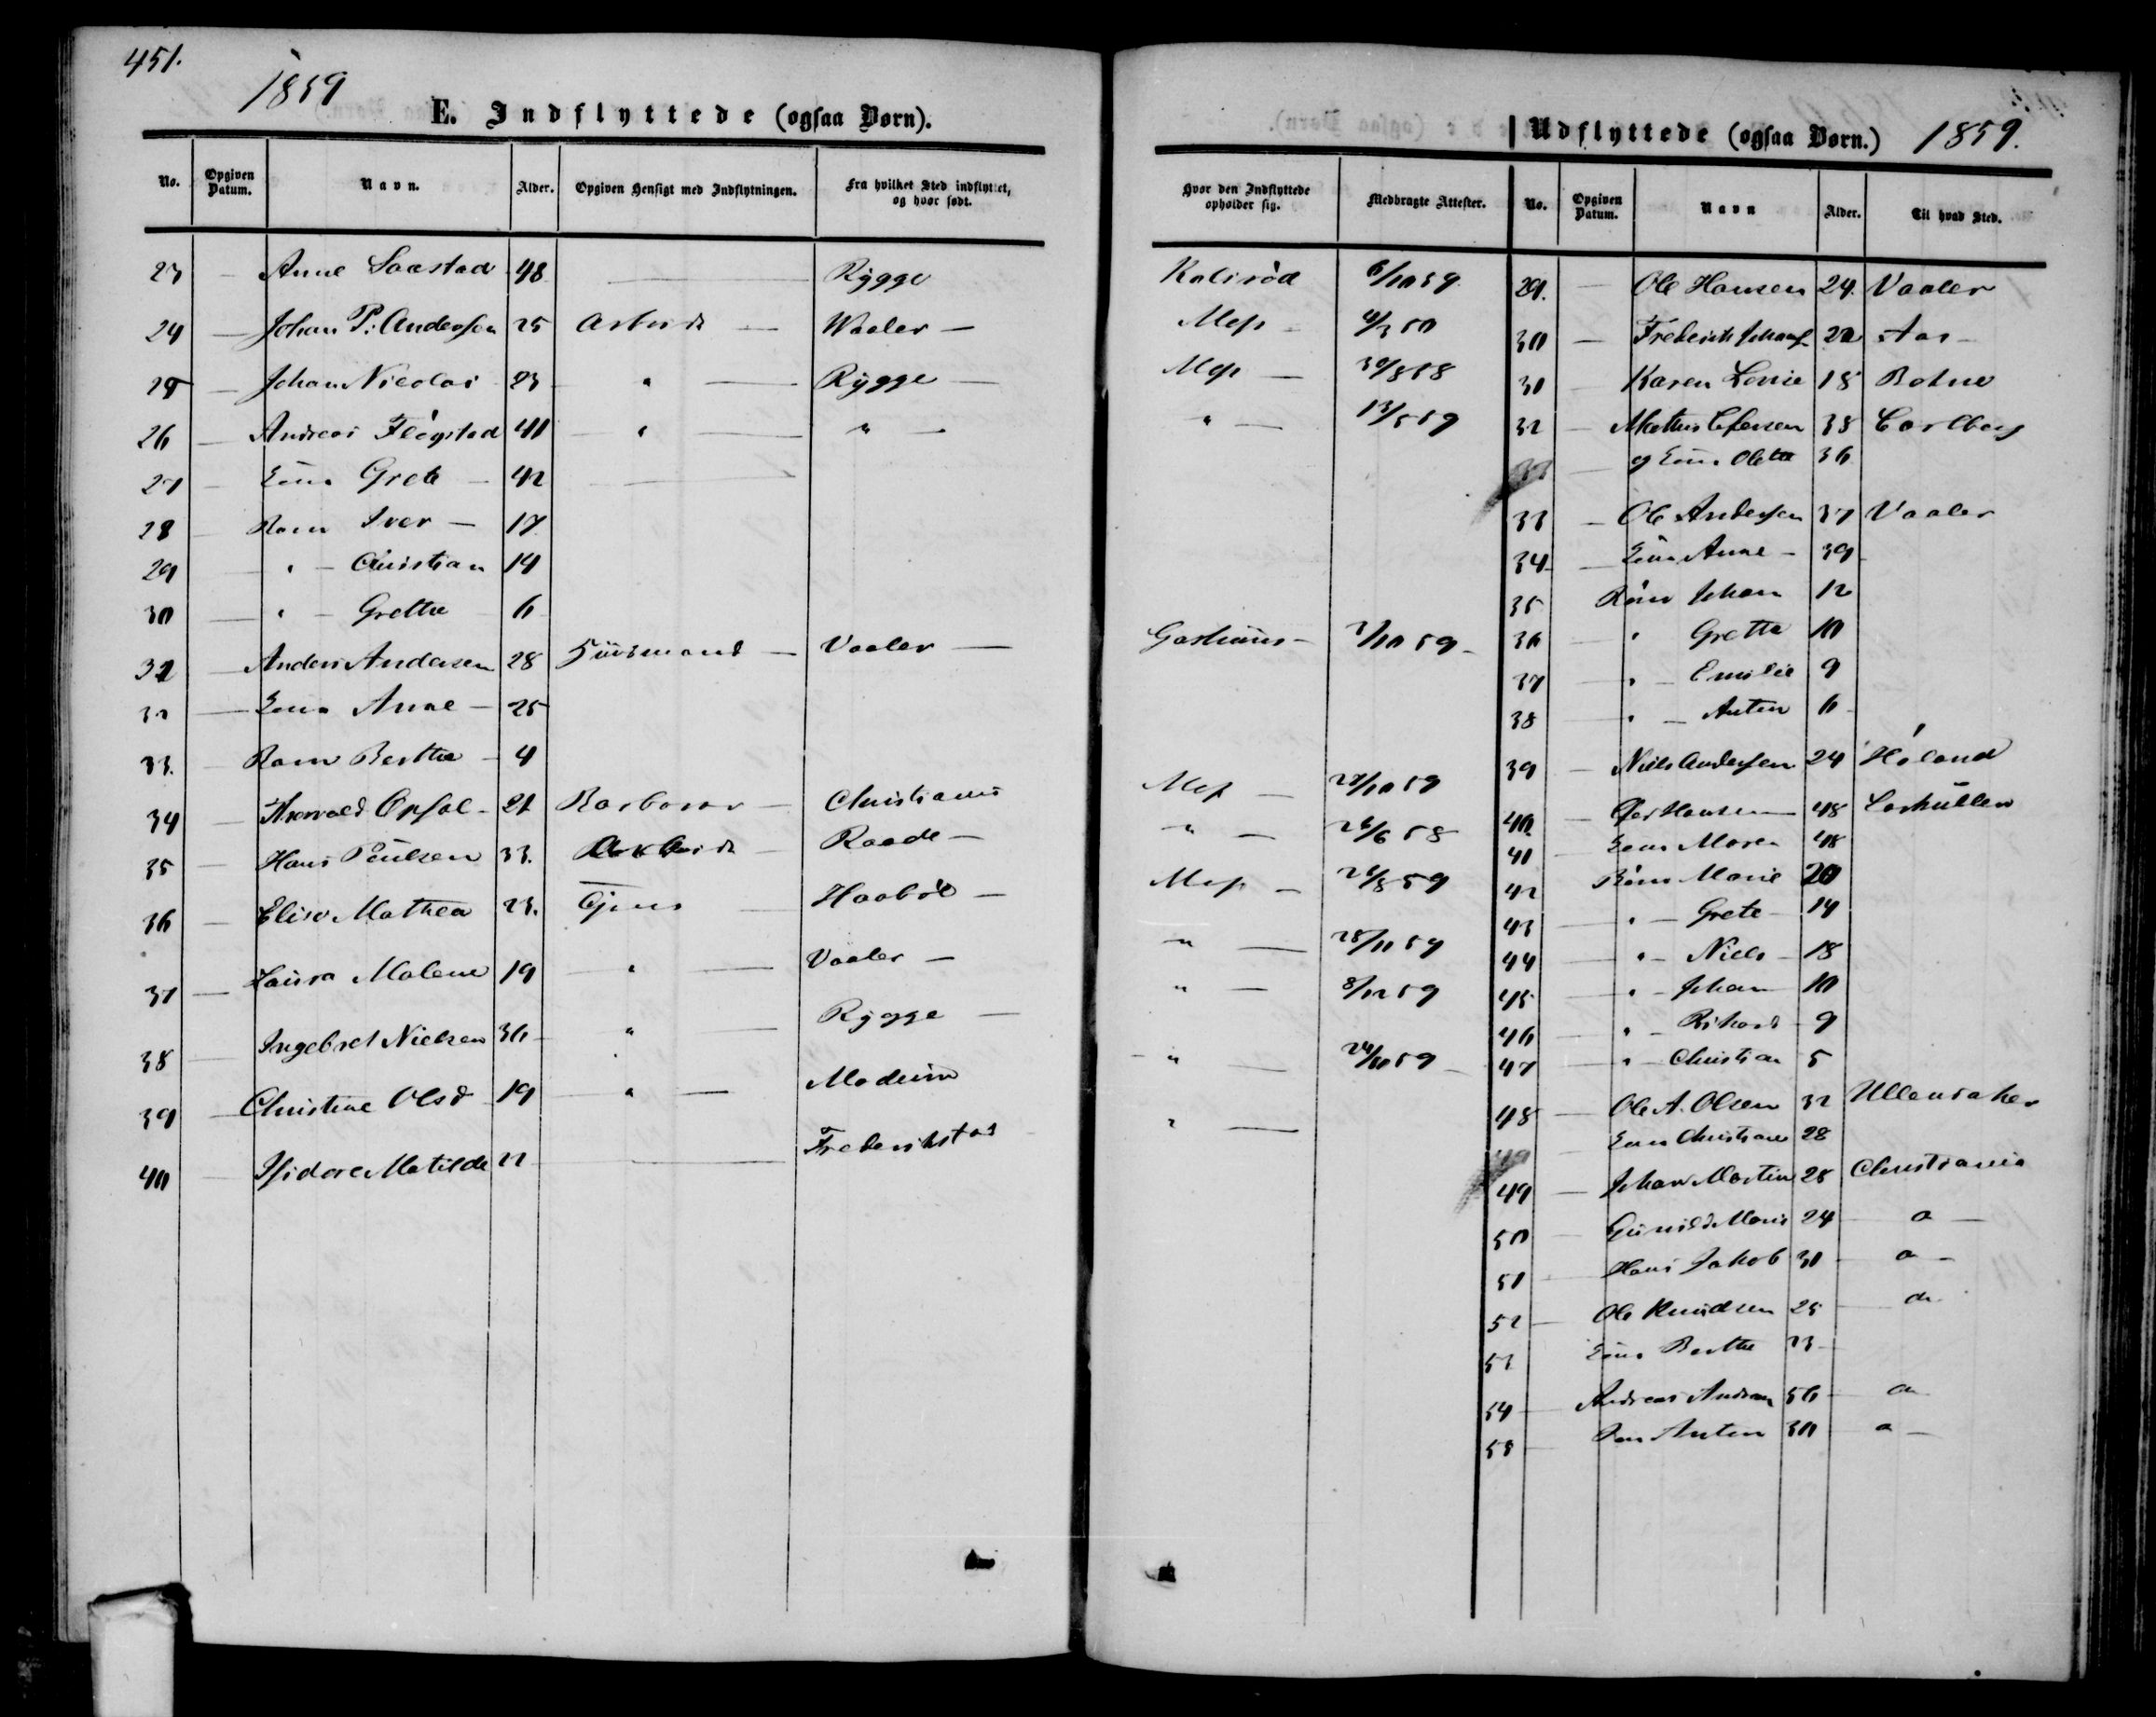 451.
1859
E. Indflyttede (ogsaa Børn).
No. Opgiven Datum. Navn. Alder. Opgiven Hensigt med Indflytningen. Fra hvilket Sted indflyttet, og hvor født.
23 — Anne Saastad 48 — Rygge
24 — Johan P. Andersen 25 Arbeid — Waaler —
25 — Johan Nicolai 23 " — Rygge —
26 — Andreas Fløgstad 41 — " — " —
27 — Grete — 42 —
28 — Iver — 17
29 — " — Christian 14
30 — " — Grethe 6
32 — Anders Andersen 28 Huusmand — Vaaler —
32 — Anne — 25
33. — Berthe — 4
34 — Opsal — 21 — Christiania
35 — Hans Poulsen 33. Arbeid — Raade —
36 — Elise Mathea 23. Tjene — Haabøl —
37 — Laura Malene 19 — " — Vaaler —
38 — Ingebret Nielsen 36 — " — Rygge —
39 — Christine Olsd 19 — " — Modum
40 — Isidore Matilde 22 — Frederikstad
Udflyttede (ogsaa Børn.) 1859.
Hvor den Indflyttede opholder sig. Medbragte Attester. No. Opgiven Datum. Navn Alder. Til hvad Sted.
Kolsrød 6/10 59. 29. — Ole Hansen 24. Vaaler
Moss — 30 — Frederik 22 Aas —
Moss — 30/8 58 31 — Karen Lovise 18 Botne
" — 13/5 59 32 — Mathis 38 Carlberg
— og Olette 36
33 — Ole Andersen 37 Vaaler
34 — Anne — 39
35 Børn Johan 12
Gashuus — 7/10 59 — 36 — " Grethe 10
37 — " — Emilie 9
38 — " — Anton 6
39 — Niels Andersen 24 Høland
Moss — 27/10 59 40. — Hansen — 48
" — 26/6 58 41 Maren 48
Moss — 21/8 59 42 Børn Marie 20
43 " — Grete — 14
" — 28/11 59 44 — " — Niels — 18
" — 8/12 59 45 — " — Johan — 10
46 — " — Rikard — 9
— " — 24/10 59 — 47 — " — Christian 5
" — 48 — Ole A. Olsen 32 Ullensaker
— Christiane 28
49 — Johan Martin 28 Christiania
50 — Gunild Marie 24 — " —
51 — Hans Jakob 30 — " —
52 — Ole Knudsen 25 —
53 Berthe 23 —
54 — Andreas 56 —
55 — Anton 30 — " —